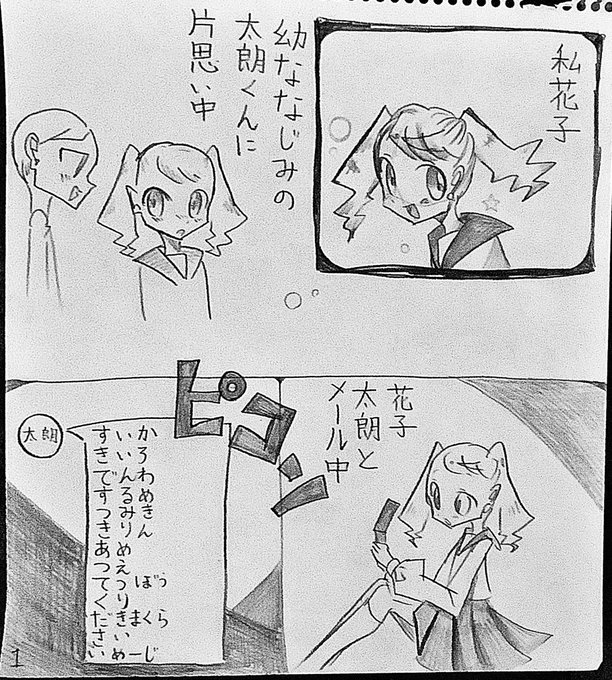 私花子
幼ななじみの
太朗くんに
片思い中
花子
太朗と
メール中
ピコン
太朗
すいか
きいろ
でんわ
するめ
つみき
きりん
あめ
つえ
てつぼう
くり
だきまくら
さい
いめーじ
1